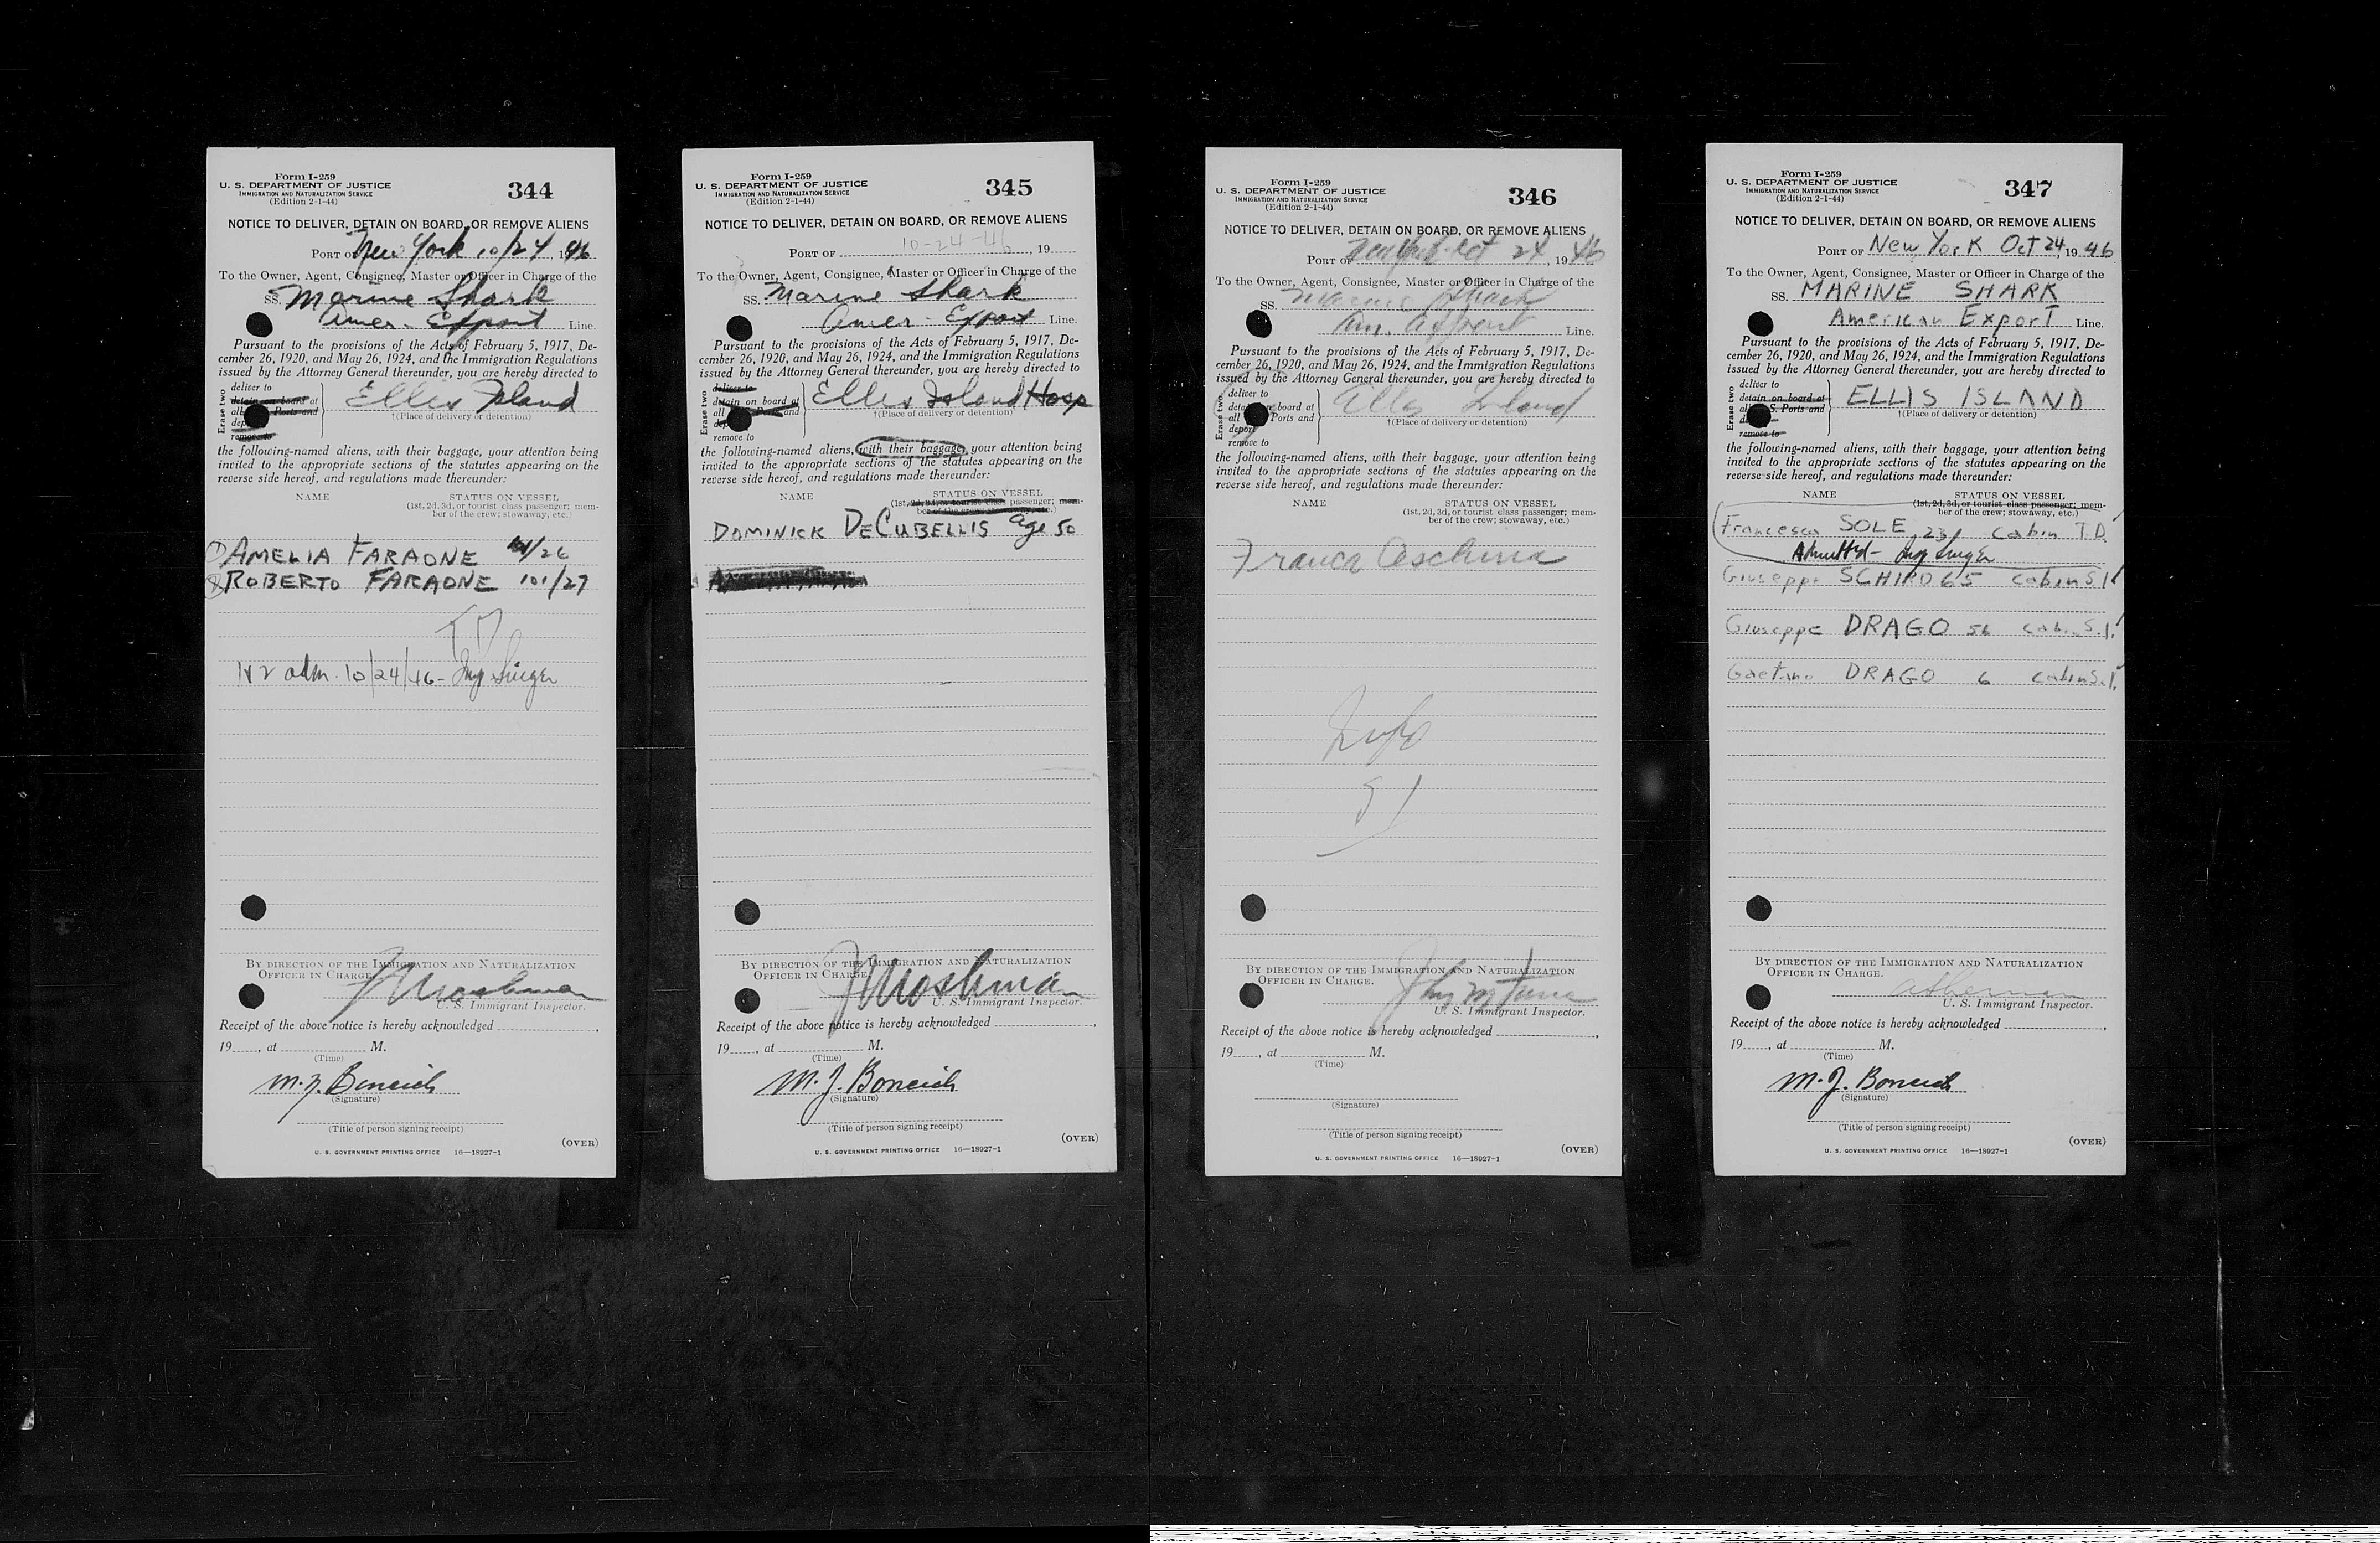 Form I-259
U. S. DEPARTMENT OF JUSTICE
IMMIGRATION AND NATURALIZATION SERVICE
(Edition 2-1-44)
344
NOTICE TO DELIVER, DETAIN ON BOARD, OR REMOVE ALIENS
PORT OF New York 10/24, 1946
To the Owner, Agent, Consignee, Master or Officer in Charge of the
SS. Marine Shark
Amer. Export Line.
Pursuant to the provisions of the Acts of February 5, 1917, De-
cember 26, 1920, and May 26, 1924, and the Immigration Regulations
issued by the Attorney General thereunder, you are hereby directed to
Erase two
deliver to
detain on board at
all Ports and
remove to
Ellis Island
†(Place of delivery or detention)
the following-named aliens, with their baggage, your attention being
invited to the appropriate sections of the statutes appearing on the
reverse side hereof, and regulations made thereunder:
NAME STATUS ON VESSEL
(1st, 2d, 3d, or tourist class passenger; mem-
ber of the crew; stowaway, etc.)
① AMELIA FARAONE 101/26
② ROBERTO FARAONE 101/27
TD
1 & 2 adm. 10/24/46 - Insp Singer
BY DIRECTION OF THE IMMIGRATION AND NATURALIZATION
OFFICER IN CHARGE.
J Moshman
U. S. Immigrant Inspector.
Receipt of the above notice is hereby acknowledged
19 , at M.
(Time)
M. J. Boncich
(Signature)
(Title of person signing receipt)
(OVER)
U. S. GOVERNMENT PRINTING OFFICE 16—18927-1
Form I-259
U. S. DEPARTMENT OF JUSTICE
IMMIGRATION AND NATURALIZATION SERVICE
(Edition 2-1-44)
345
NOTICE TO DELIVER, DETAIN ON BOARD, OR REMOVE ALIENS
PORT OF 10-24-46, 19
To the Owner, Agent, Consignee, Master or Officer in Charge of the
SS. Marine Shark
Amer. Export Line.
Pursuant to the provisions of the Acts of February 5, 1917, De-
cember 26, 1920, and May 26, 1924, and the Immigration Regulations
issued by the Attorney General thereunder, you are hereby directed to
Erase two
deliver to
detain on board at
all and
remove to
Ellis Island Hosp
†(Place of delivery or detention)
the following-named aliens, with their baggage, your attention being
invited to the appropriate sections of the statutes appearing on the
reverse side hereof, and regulations made thereunder:
NAME STATUS ON VESSEL
(1st, 2d, 3d, or tourist class passenger; mem-
ber of the crew; stowaway, etc.)
DOMINICK DECUBELLIS age 50
BY DIRECTION OF THE IMMIGRATION AND NATURALIZATION
OFFICER IN CHARGE.
J Moshman
U. S. Immigrant Inspector.
Receipt of the above notice is hereby acknowledged
19 , at M.
(Time)
M. J. Boncich
(Signature)
(Title of person signing receipt)
(OVER)
U. S. GOVERNMENT PRINTING OFFICE 16—18927-1
Form I-259
U. S. DEPARTMENT OF JUSTICE
IMMIGRATION AND NATURALIZATION SERVICE
(Edition 2-1-44)
346
NOTICE TO DELIVER, DETAIN ON BOARD, OR REMOVE ALIENS
PORT OF New York Oct 24, 1946
To the Owner, Agent, Consignee, Master or Officer in Charge of the
SS. Marine Shark
Am. Export Line.
Pursuant to the provisions of the Acts of February 5, 1917, De-
cember 26, 1920, and May 26, 1924, and the Immigration Regulations
issued by the Attorney General thereunder, you are hereby directed to
Erase two
deliver to
board at
all Ports and
deport
remove to
Ellis Island
†(Place of delivery or detention)
the following-named aliens, with their baggage, your attention being
invited to the appropriate sections of the statutes appearing on the
reverse side hereof, and regulations made thereunder:
NAME STATUS ON VESSEL
(1st, 2d, 3d, or tourist class passenger; mem-
ber of the crew; stowaway, etc.)
Franca
SI
BY DIRECTION OF THE IMMIGRATION AND NATURALIZATION
OFFICER IN CHARGE.
U. S. Immigrant Inspector.
Receipt of the above notice is hereby acknowledged
19 , at M.
(Time)
(Signature)
(Title of person signing receipt)
(OVER)
U. S. GOVERNMENT PRINTING OFFICE 16—18927-1
Form I-259
U. S. DEPARTMENT OF JUSTICE
IMMIGRATION AND NATURALIZATION SERVICE
(Edition 2-1-44)
347
NOTICE TO DELIVER, DETAIN ON BOARD, OR REMOVE ALIENS
PORT OF New York Oct 24, 1946
To the Owner, Agent, Consignee, Master or Officer in Charge of the
SS. MARINE SHARK
American Export Line.
Pursuant to the provisions of the Acts of February 5, 1917, De-
cember 26, 1920, and May 26, 1924, and the Immigration Regulations
issued by the Attorney General thereunder, you are hereby directed to
Erase two
deliver to
detain on board at
S. Ports and
remove to
ELLIS ISLAND
†(Place of delivery or detention)
the following-named aliens, with their baggage, your attention being
invited to the appropriate sections of the statutes appearing on the
reverse side hereof, and regulations made thereunder:
NAME STATUS ON VESSEL
(1st, 2d, 3d, or tourist class passenger; mem-
ber of the crew; stowaway, etc.)
Francesca SOLE, 23, Cabin T.D.
Admitted - Insp Singer
Giuseppe SCHIRO 65 Cabin S.I.
Giuseppe DRAGO 56 Cabin S.I.
Gaetano DRAGO 6 Cabin S.I.
BY DIRECTION OF THE IMMIGRATION AND NATURALIZATION
OFFICER IN CHARGE.
U. S. Immigrant Inspector.
Receipt of the above notice is hereby acknowledged
19 , at M.
(Time)
M. J. Boncich
(Signature)
(Title of person signing receipt)
(OVER)
U. S. GOVERNMENT PRINTING OFFICE 16—18927-1